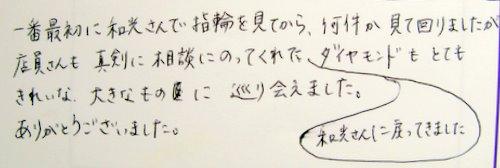 一番最初に和光さんで指輪を見てから、何件か見て回りましたが
店員さんも真剣に相談にのってくれた、ダイヤモンドもとても
きれいな、大きなものに巡り会えました。
ありがとうございました。
和光さんに戻ってきました